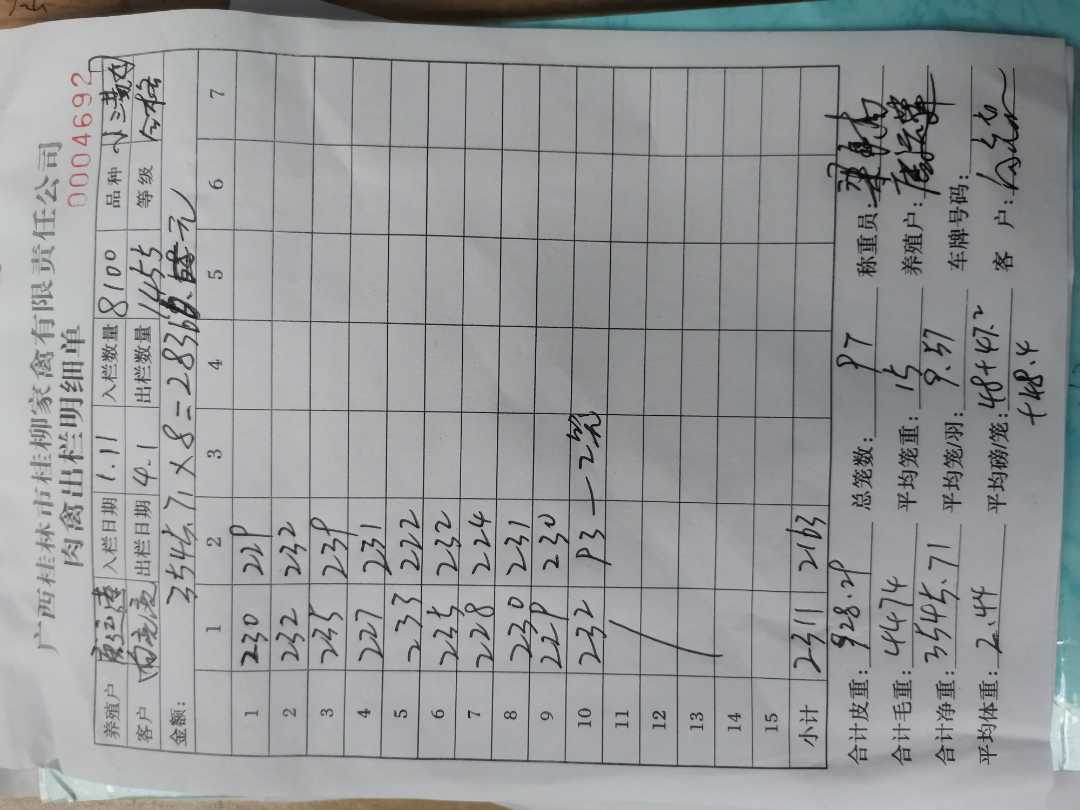 广西桂林市桂柳家禽有限责任公司
肉禽出栏明细单
0004692
养殖户 入栏日期 1.11 入栏数量 8100 品种
客户 出栏日期 4.1 出栏数量 1455 等级 合格
金额: 3545.71×8=28366. 元
1 2 3 4 5 6 7
1 230 229
2 232 232
3 235 239
4 227 231
5 233 222
6 235 232
7 228 224
8 230 231
9 229 230
10 232 93—2笼
11
12
13
14
15
小计 2311 2163
合计皮重: 928.29 总笼数: 97 称重员:
合计毛重: 4474 平均笼重: 15 养殖户:
合计净重: 3545.71 平均笼/羽: 9.57 车牌号码:
平均体重: 2.44 平均磅/笼: 48+47.2 客 户:
+48.4